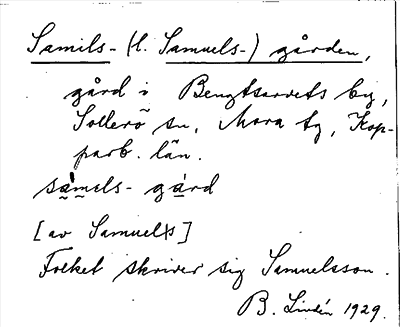 Samils- (l. Samuels-) gården,
gård i Bengtsarvets by,
Sollerö sn, Mora tg, Kop-
parb. län.
sàmels- gård
[av Samuels]
Folket skriver sig Samuelsson.
B. Lindén 1929.